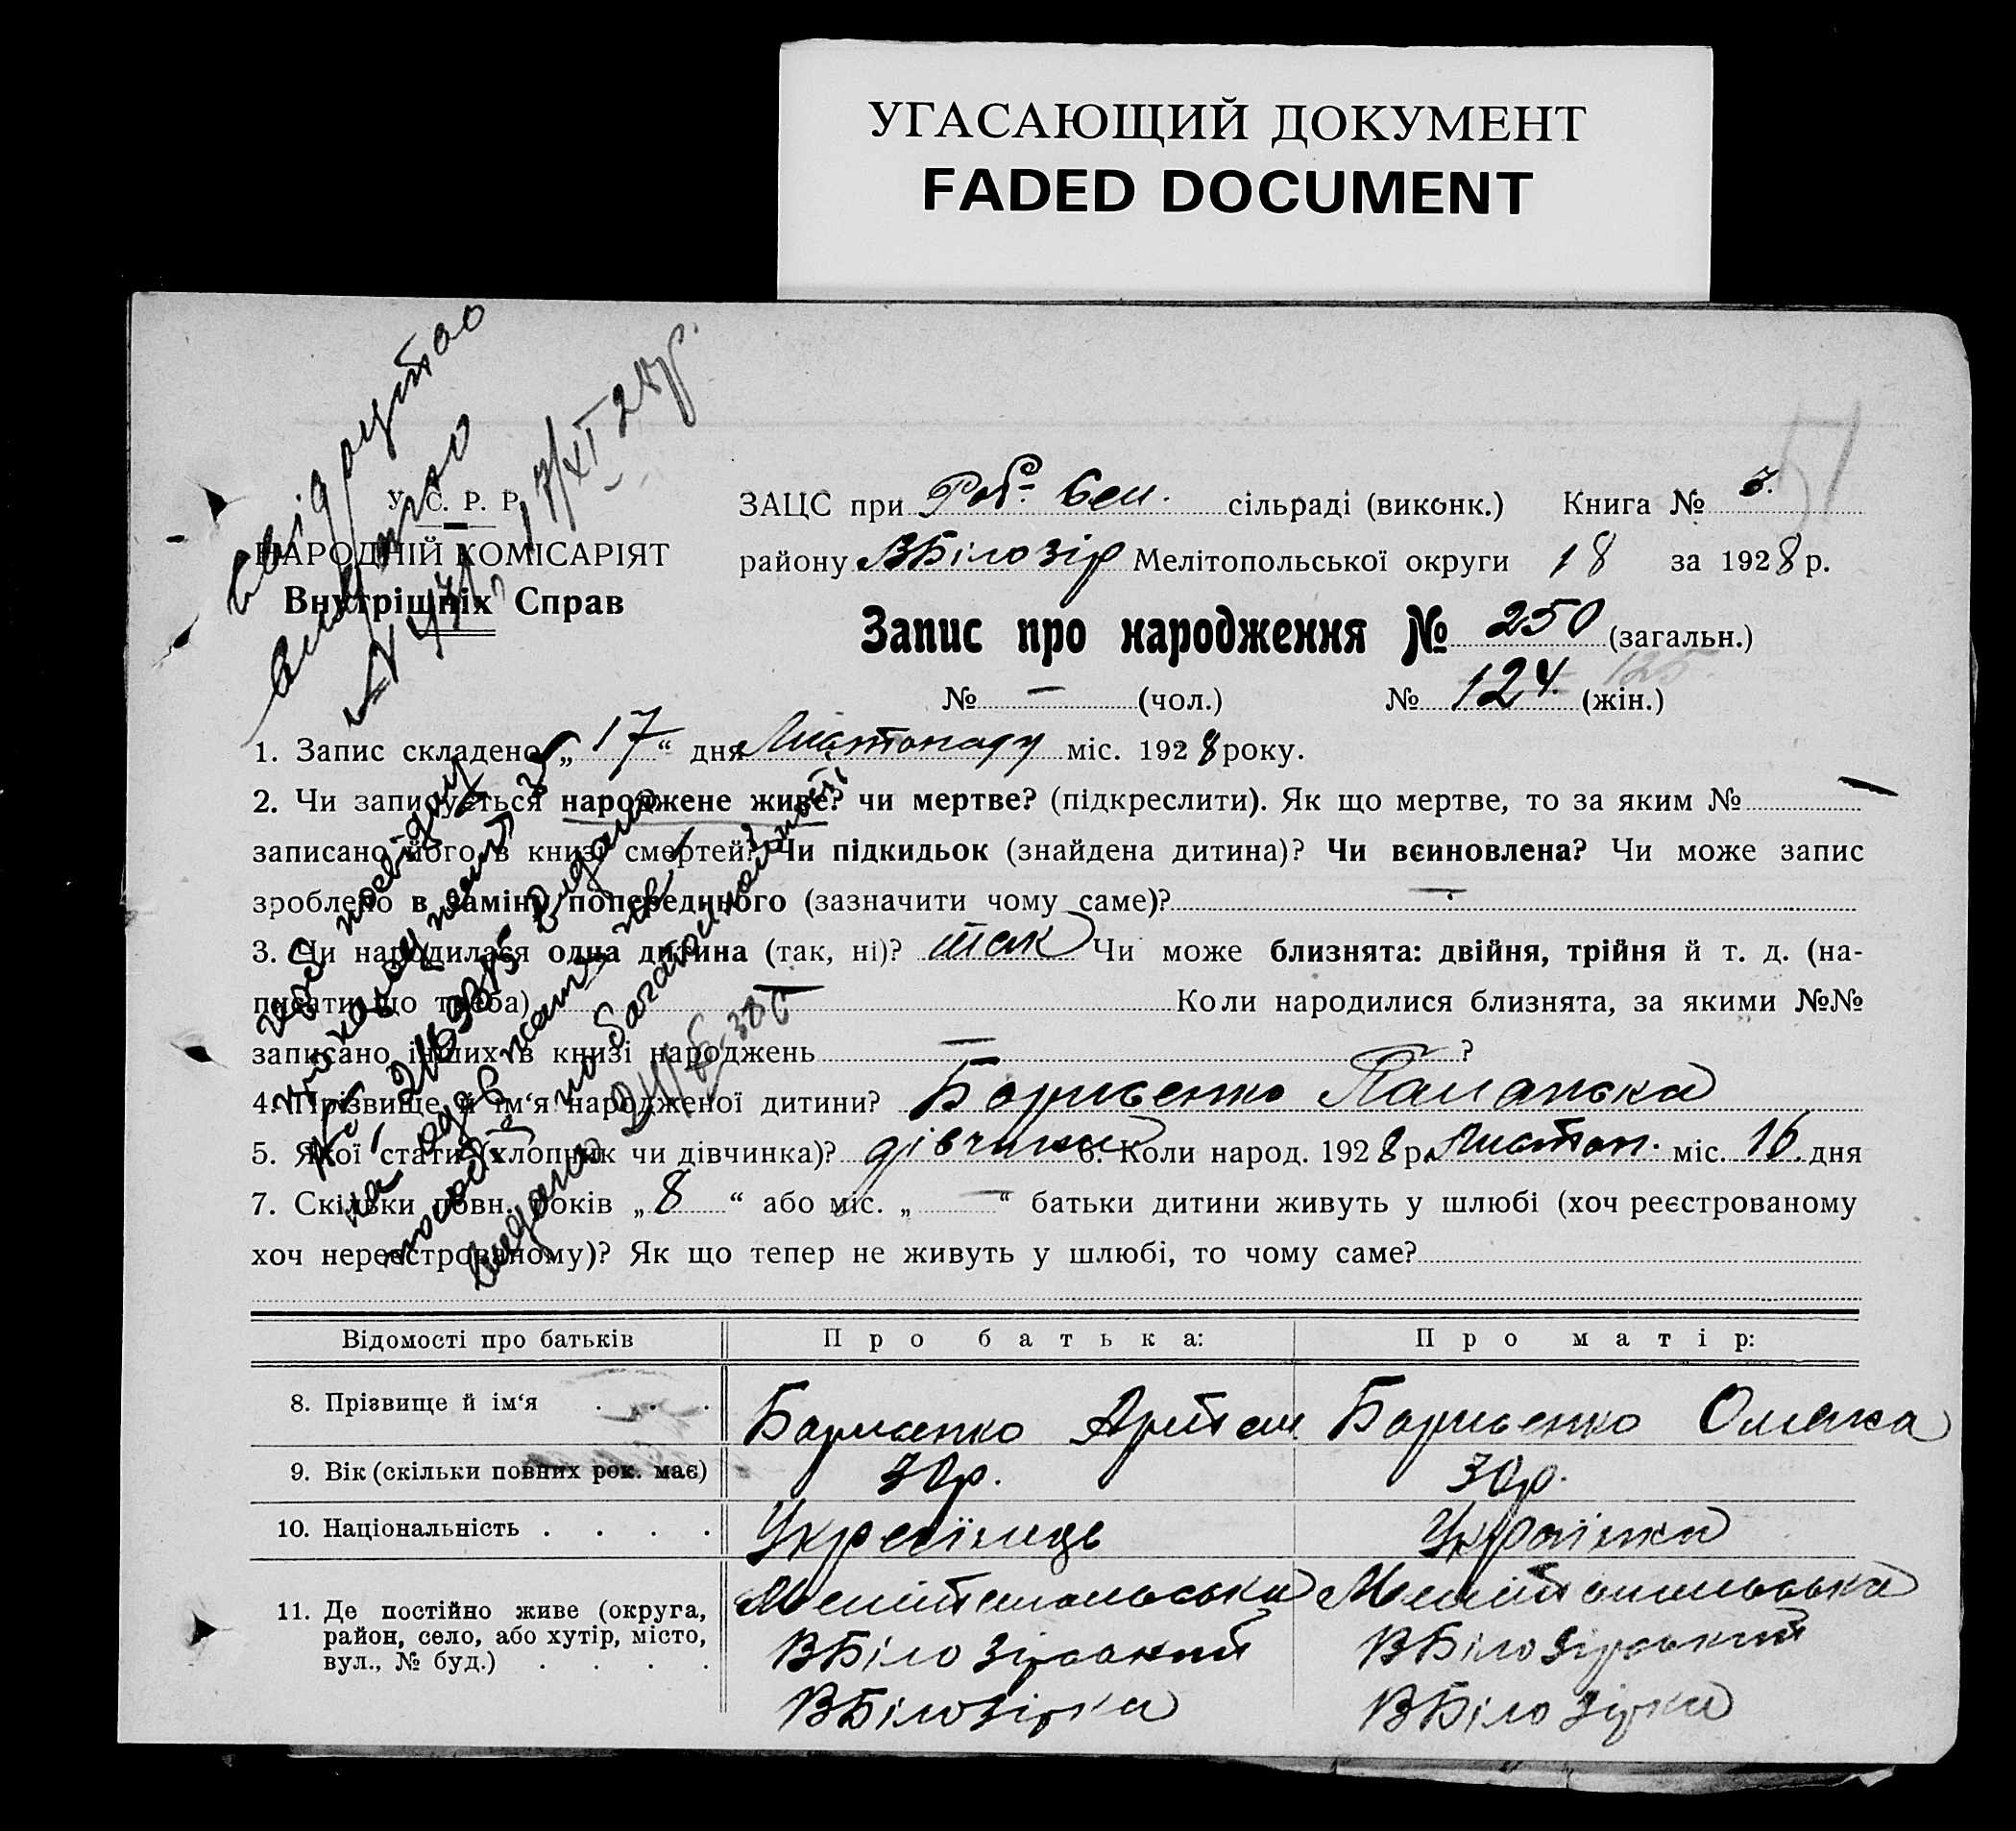 УГАСАЮЩИЙ ДОКУМЕНТ
FADED DOCUMENT
51
У. С. Р. Р.
НАРОДНІЙ КОМІСАРІЯТ
Внутрішніх Справ
ЗАЦС при Роб. Сел. сільраді (виконк.) Книга № 3.
району ВБілозір Мелітопольської округи 18 за 1928 р.
Запис про народження № 250 (загальн.)
№ — (чол.) № 124. (жін.)
125.
Свідоцтво
видано
17/XI 28р.
1. Запис складено „17“ дня Листопаду міс. 1928 року.
2. Чи записується народжене живе? чи мертве? (підкреслити). Як що мертве, то за яким № —
записано його в книзі смертей? Чи підкидьок (знайдена дитина)? Чи всиновлена? Чи може запис
зроблено в заміну попереднього (зазначити чому саме)? —
3. Чи народилася одна дитина (так, ні)? так Чи може близнята: двійня, трійня й т. д. (на-
писати що треба) — Коли народилися близнята, за якими №№
записано інших в книзі народжень — ?
4. Прізвище й ім‘я народженої дитини?
5. Якої статі (хлопчик чи дівчинка)? дівчинка 6. Коли народ. 1928 р. Листоп. міс. 16 дня
7. Скільки повн. років „8“ або міс. „—“ батьки дитини живуть у шлюбі (хоч реєстрованому
хоч нереєстрованому)? Як що тепер не живуть у шлюбі, то чому саме?
видано
по багатодітності
видано
Відомості про батьків Про батька: Про матір:
8. Прізвище й ім‘я Артем
9. Вік (скільки повних рок. має) 30р. 30р.
10. Національність Українець Українка
11. Де постійно живе (округа, район, село, або хутір, місто, вул., № буд.)
Мелітопольська Мелітопольська
ВБілозірський ВБілозірський
ВБілозірка ВБілозірка